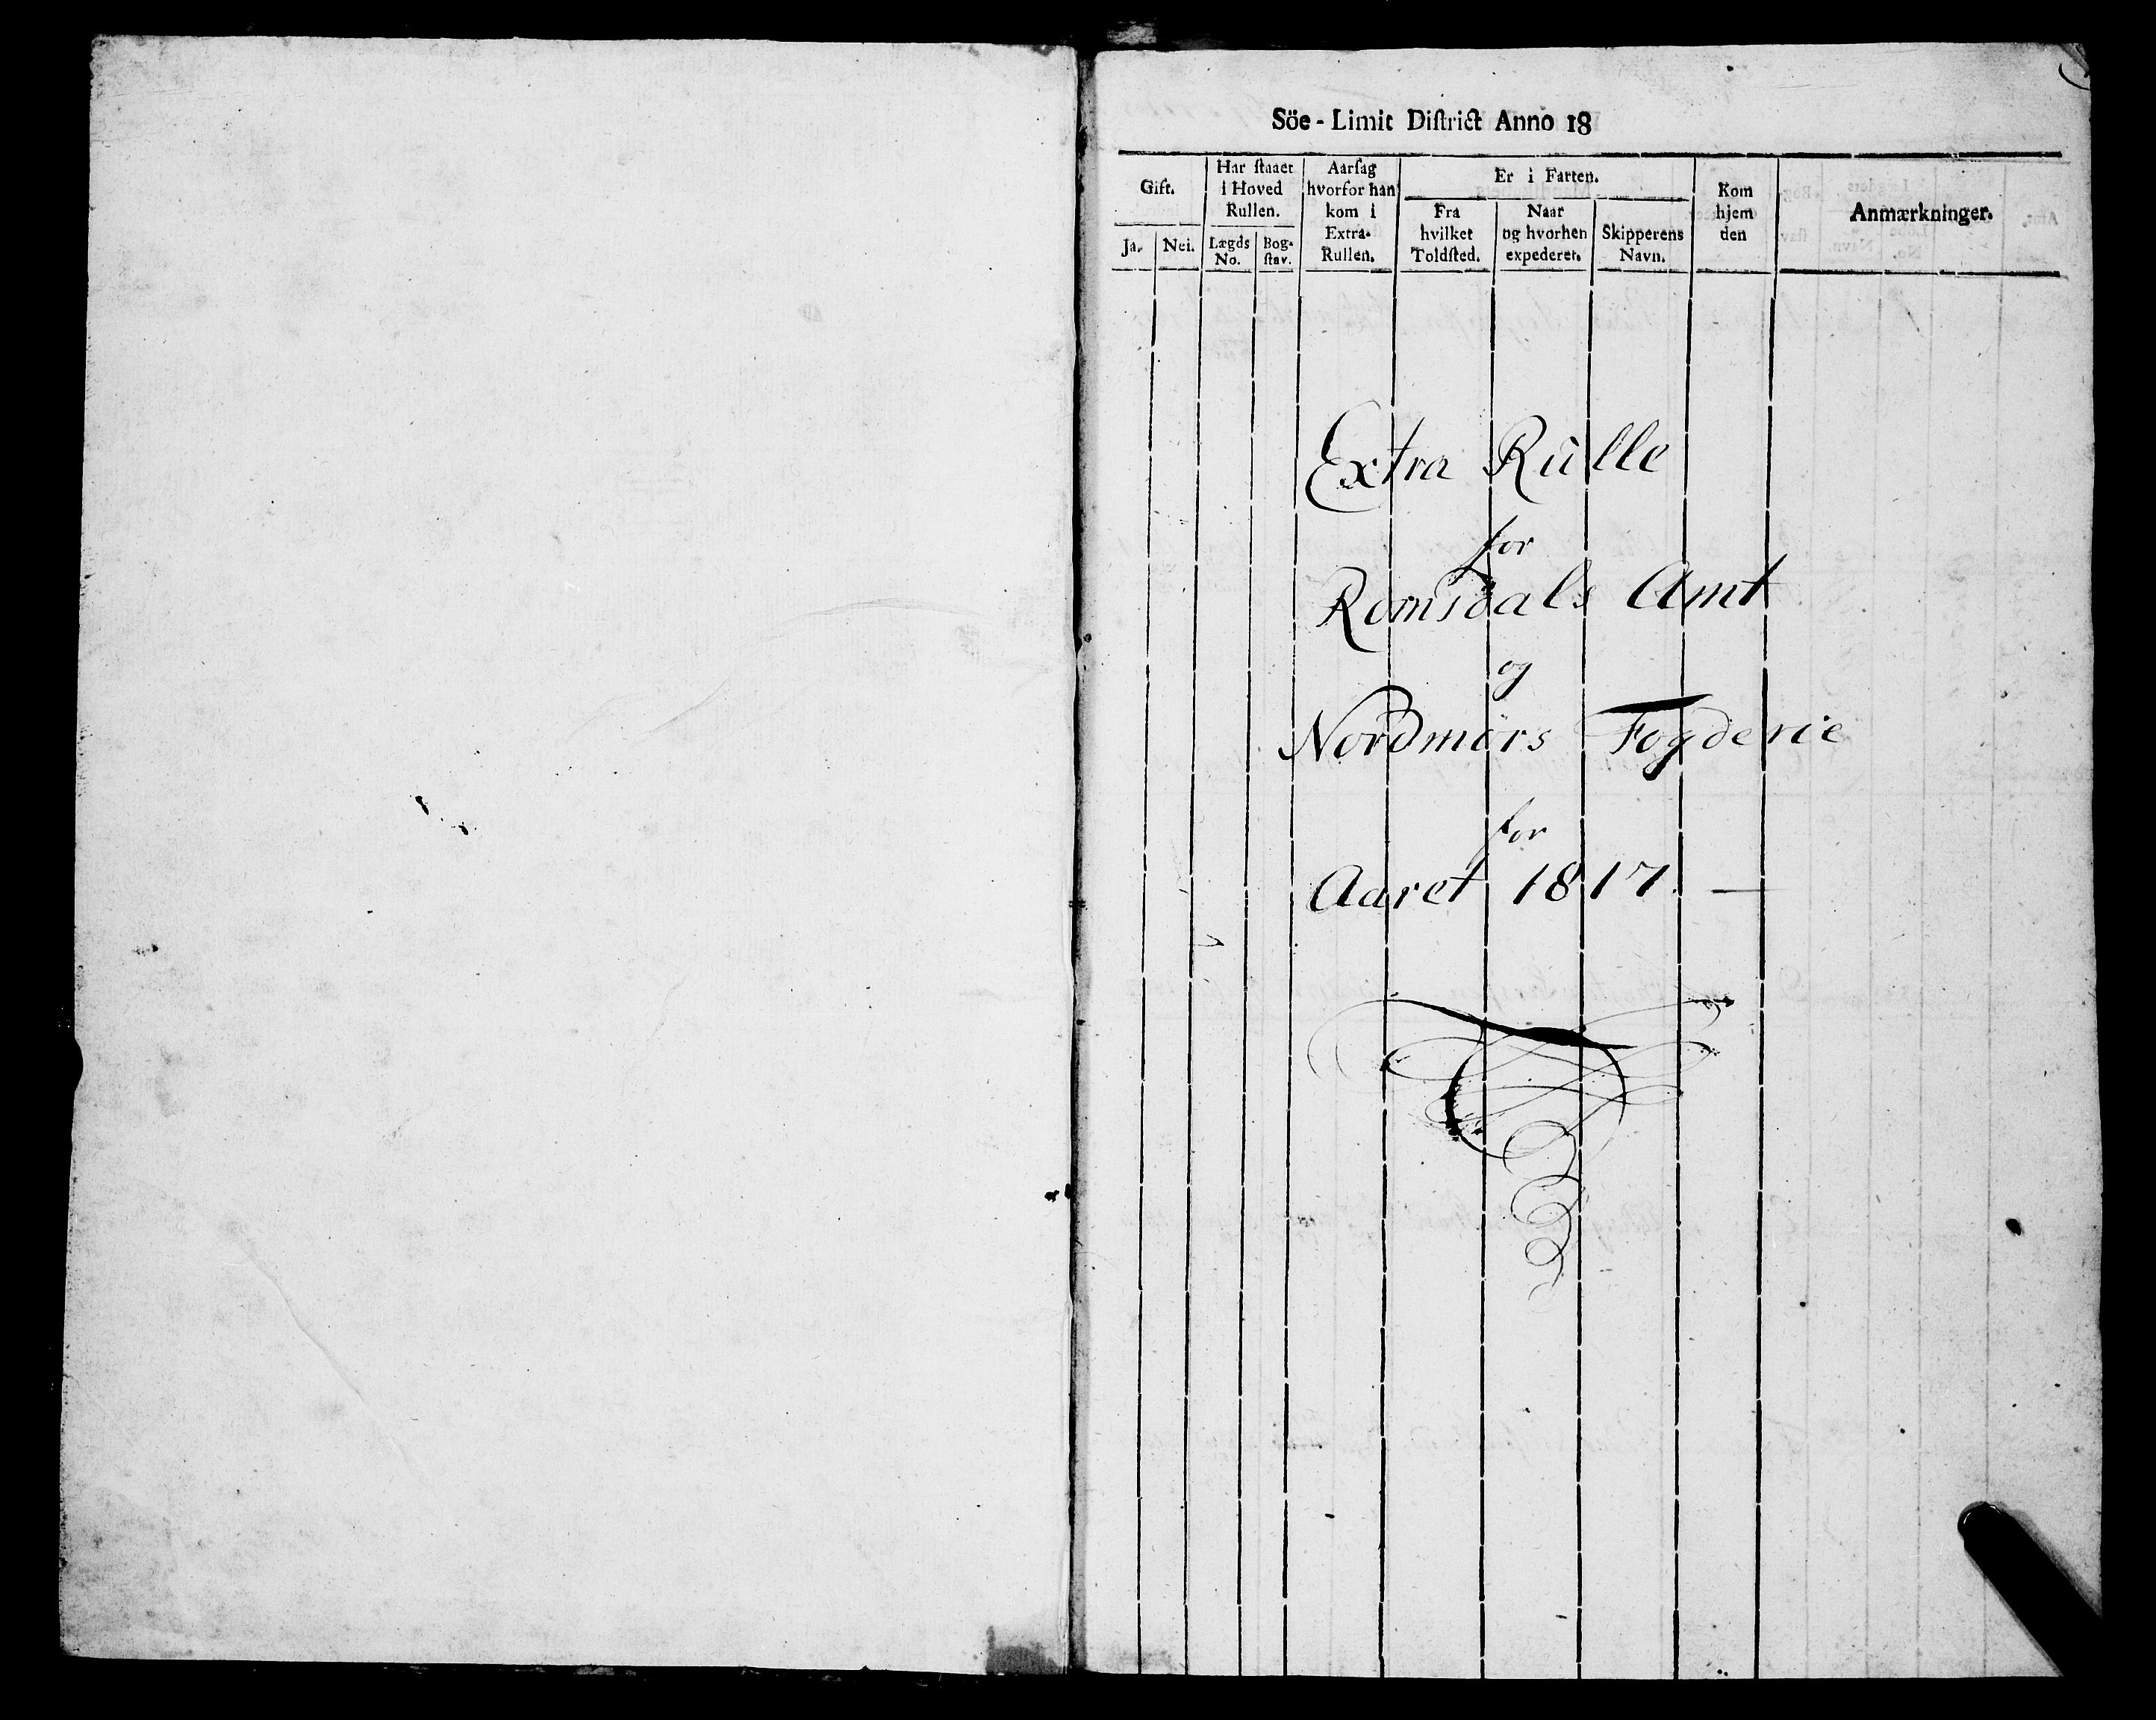 Söe-Limit Diſtrict Anno 18
Gift.
Ja.
Nei.
Har ſtaaet
i Hoved
Rullen.
Lægds
No.
Bog-
ſtav.
Aarſag
hvorfor han
kom i
Extra-
Rullen.
Er i Farten.
Fra
hvilket
Toldſted.
Naar
og hvorhen
expederet.
Skipperens
Navn.
Kom
hjem
den
Anmærkninger.
Extra Rulle
for
Romsdals Amt
og
Nordmörs Fogderie
for
Aaret 1817. —